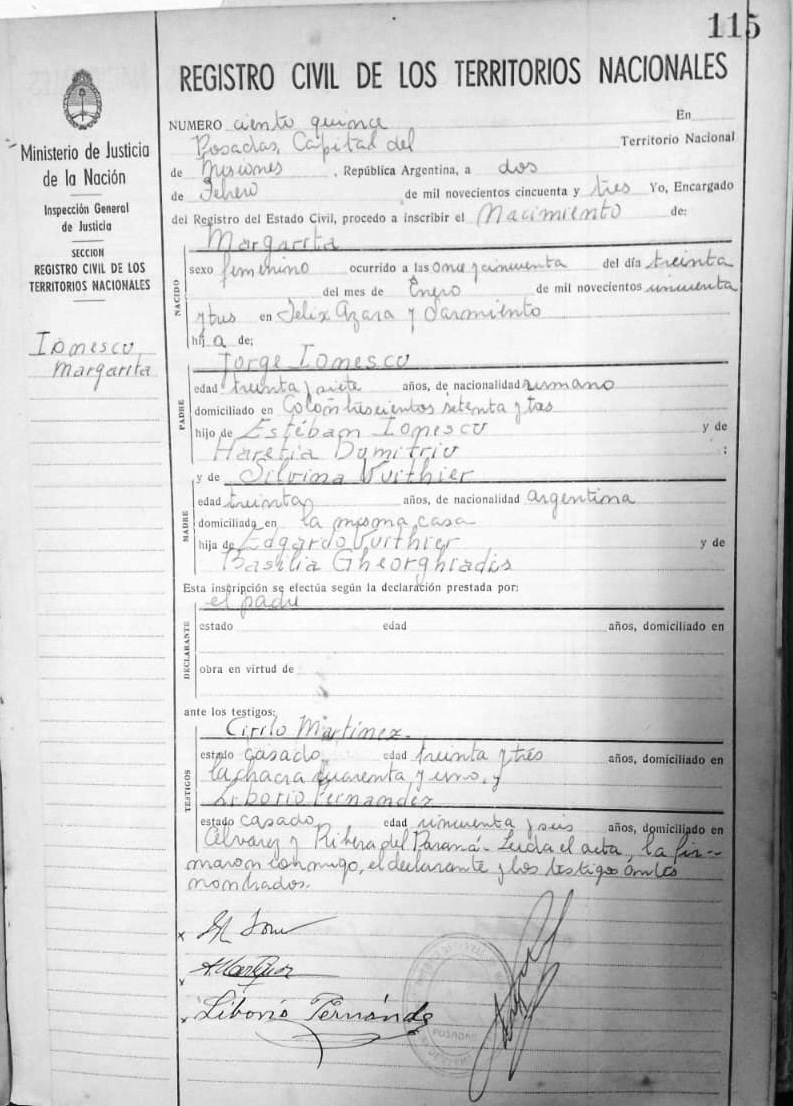 115
REGISTRO CIVIL DE LOS TERRITORIOS NACIONALES
Ministerio de Justicia
de la Nación
Inspección General
de Justicia
SECCION
REGISTRO CIVIL DE LOS
TERRITORIOS NACIONALES
Ionescu
Margarita
NUMERO ciento quince En
Posadas, Capital del Territorio Nacional
de Misiones, República Argentina, a dos
de Febrero de mil novecientos cincuenta y tres Yo, Encargado
del Registro del Estado Civil, procedo a inscribir el Nacimiento de:
NACIDO
Margarita
sexo femenino ocurrido a las once y cincuenta del día treinta
del mes de Enero de mil novecientos cincuenta
y tres en Felix Azara y Sarmiento
hija de:
PADRE
Jorge Ionescu
edad treinta y siete años, de nacionalidad rumano
domiciliado en Colón trescientos setenta y tres
hijo de Estéban Ionescu y de
Haretia Dumitriu ;
y de Silvina Vuithier
MADRE
edad treinta años, de nacionalidad argentina
domiciliada en la misma casa
hija de Edgardo Vuithier y de
Basilia Gheorghiadis
Esta inscripción se efectúa según la declaración prestada por:
el padre
DECLARANTE
estado edad años, domiciliado en
obra en virtud de
ante los testigos:
TESTIGOS
Cirilo Martínez.
estado casado edad treinta y trés años, domiciliado en
la chacra cuarenta y uno, y
Liborio Fernandez
estado casado edad cincuenta y seis años, domiciliado en
Alvarez y Ribera del Paraná - Leída el acta, la fir-
maron conmigo, el declarante y los testigos ántes
nombrados.
Liborio Fernández
POSADAS